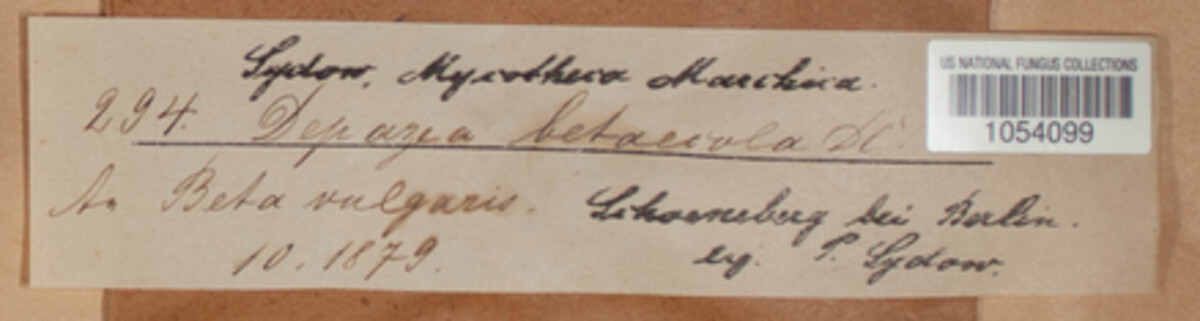 Sydow, Mycotheca Marchica.
US NATIONAL FUNGUS COLLECTIONS
1054099
294. Depazea betaecola DC.
An Beta vulgaris. Schoeneberg bei Berlin.
10.1879. leg. P. Sydow.